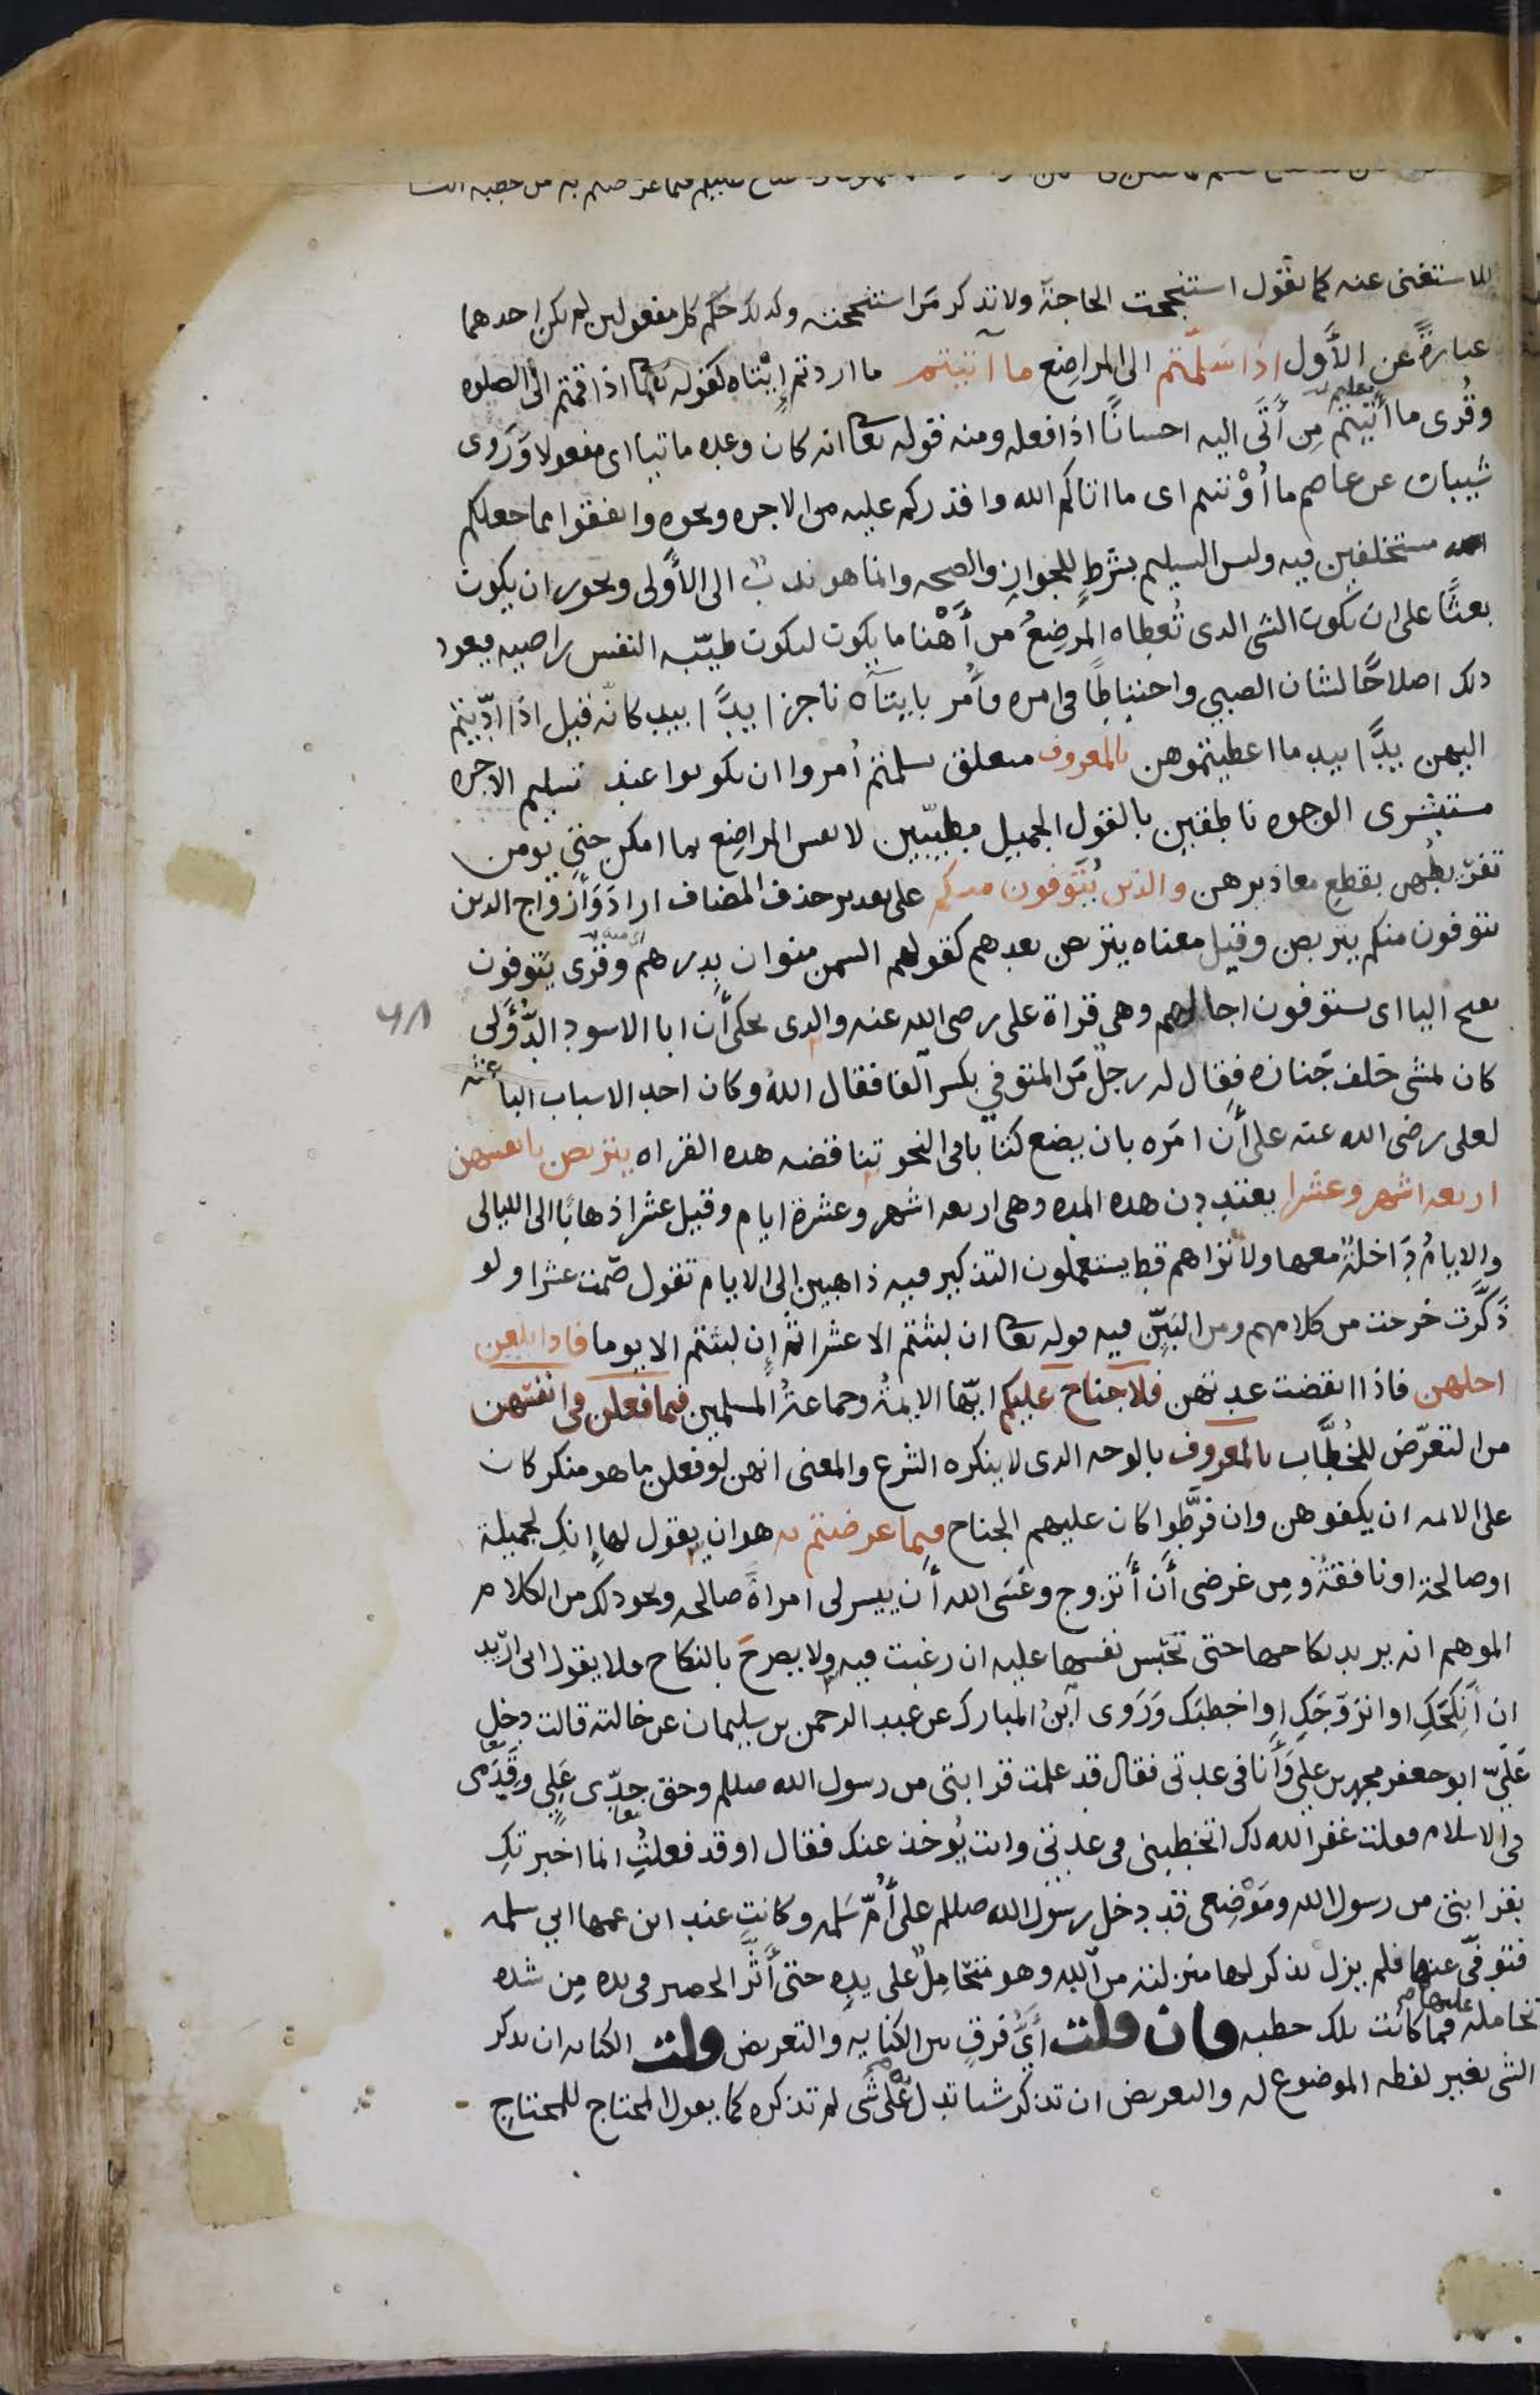 للاستغنى عنه كما تقول استنجحت الحاجة ولا تذكر من استنجحته وكذلك حكم كل مفعولين لم يكن احدهما
عبارة عن الأول اذا سلمتم الى المراضع ما آتيتم ما اردتم إيتاه كقوله تعا اذا قمتم الى الصلوه
وقرى ما أتيتم من أتى اليه احسانا اذا فعله ومنه قوله تعا انه كان وعده ماتيا اى مفعولا وروى
شيبان عن عاصم ما أوتيتم اى ما اتاكم الله واقدركم عليه من الاجره ونحوه وانفقوا مما جعلكم
مستخلفين فيه وليس التسليم بشرط للجواز والصحه وانما هو ندب الى الأولى ويجوز ان يكون
بعثا على ان يكون الشى الذى تعطاه المرضع من أهنا ما يكون ليكون طيبه النفس راضيه فيعود
ذلك اصلاحا لشان الصبي واحتياطا فى امره فأمر بايتآه ناجزا يدا بيد كانه قيل اذا ادّيتم
اليهن يدا بيد ما اعطيتموهن بالمعروف متعلق بسلمتم أمروا ان يكونوا عند تسليم الاجره
مستبشرى الوجوه ناطقين بالقول الجميل مطيبين لانفس المراضع بما امكن حتى يومن
تفريطهن بقطع معاذيرهن والذين يتوفون منكم على تقدير حذف المضاف اراد وأزواج الذين
يتوفون منكم يتربصن وقيل معناه يتربصن بعدهم كقولهم السمن منوان بدرهم وقرى يتوفون
بفتح اليا اى يستوفون اجالهم وهى قراة على رضى الله عنه والذى يحكى أن ابا الاسود الدؤلى
كان يمشى خلف جنازه فقال له رجل من المتوفي بكسر آلفا فقال الله وكان احد الاسباب الباعثه
لعلى رضى الله عنه على أن امره بان يضع كتابا فى النحو تناقضه هذه القراه يتربصن بانفسهن
اربعه اشهر وعشرا يعتددن هذه المده وهى اربعه اشهر وعشرة ايام وقيل عشرا ذهابا الى الليالى
والايام داخلة معها ولا تراهم قط يستعملون التذكير فيه ذاهبين الى الايام تقول صمت عشرا ولو
ذكرت خرجت من كلامهم ومن البين فيه قوله تعا ان لبثتم الا عشرا ثم إن لبثتم الا يوما فاذا بلغن
اجلهن فاذا انقضت عدتهن فلا جناح عليكم ايها الايمة وجماعة المسلمين فيما فعلن فى انفسهن
من التعرض للخطّاب بالمعروف بالوجه الذى لا ينكره الشرع والمعنى انهن لو فعلن ما هو منكر كان
على الايمه ان يكفوهن وان فرّطوا كان عليهم الجناح فيما عرضتم به هو ان يقول لها إنك لجميلة
او صالحة او نافقة ومن غرضى أن أتزوج وعسى الله أن ييسر لى امراة صالحه ونحو ذلك من الكلام
الموهم انه يريد نكاحها حتى تحبس نفسها عليه ان رغبت فيه ولا يصرح بالنكاح فلا يقول انى اريد
ان أنكحك او اتزوجك او اخطبك وروى ابن المبارك عن عبد الرحمن بن سليمان عن خالته قالت دخل
علىّ ابو جعفر محمد بن على وأنا فى عدتى فقال قد علمت قرابتى من رسول الله صللم وحق جدّى على وقدمى
فى الاسلام فقلت غفر الله لك اتخطبنى فى عدتى وانت يوخذ عنك فقال اوقد فعلت انما اخبرتك
بقرابتى من رسول الله وموضعى قد دخل رسول الله صللم على أمّ سلمه وكانت عند ابن عمها ابى سلمه
فتوفى عنها فلم يزل يذكر لها منزلته من الله وهو متحامل على يده حتى أثّر الحصير فى يده من شده
تحامله عليها فما كانت تلك خطبه فان قلت أىّ فرق بين الكنايه والتعريض قلت الكنايه ان يذكر
الشى بغير لفظه الموضوع له والتعريض ان تذكر شيا تدل على شى لم تذكره كما يقول المحتاج للمحتاج